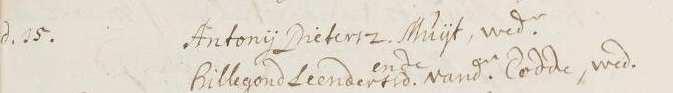 d. 15. Antonij Pieters z. Muijt, wedr.
ende
Hillegond Leenderts d. vandr. Codde, wed.